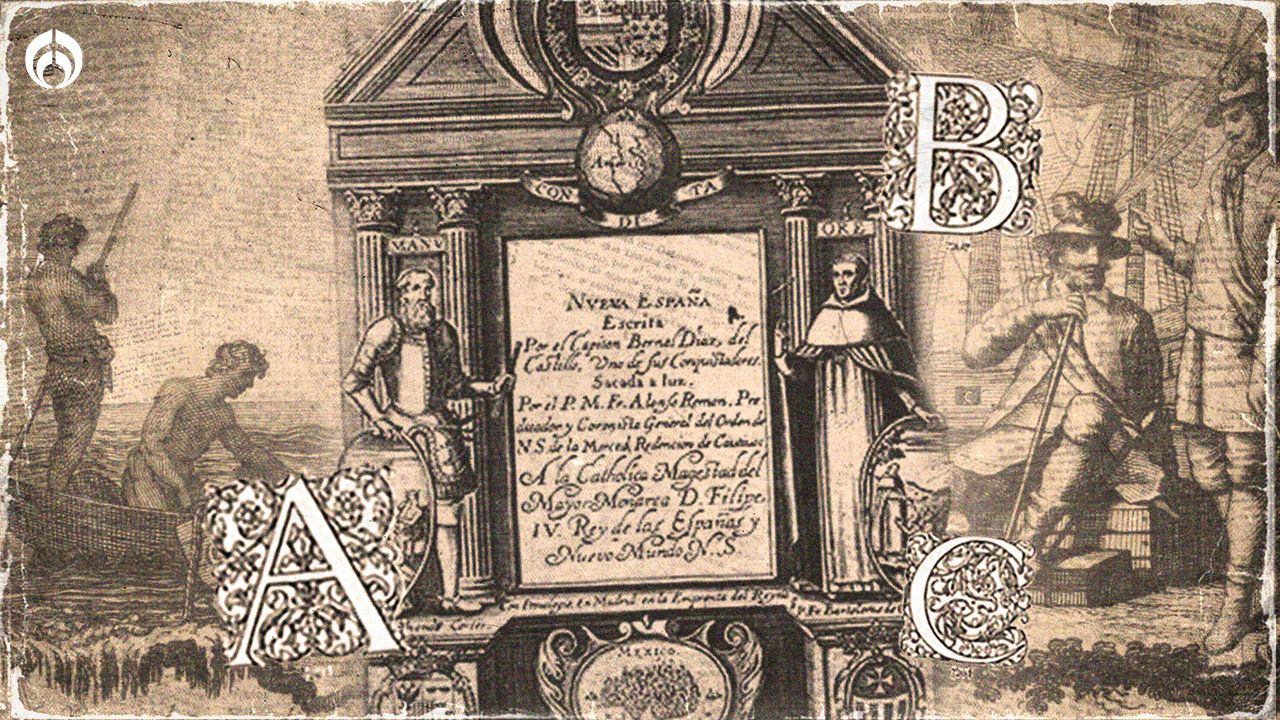 B
CON DI TA
MANV
ORE
NVEVA ESPAÑA
Escrita
Por el Capitan Bernal Diaz, del
Castillo, Uno de sus Conquistadores.
Sacada a luz.
Por el P. M. Fr. Alonso Remon, Pre
dicador y Coronista General del Orden de
N.S. de la Merced Redencion de Cautivos
A la Catholica Magestad del
Mayor Monarca D. Filipe
IV. Rey de las Españas y
Nuevo Mundo N.S
A
C
en Madrid en la Emprenta del Reyno
MEXICO